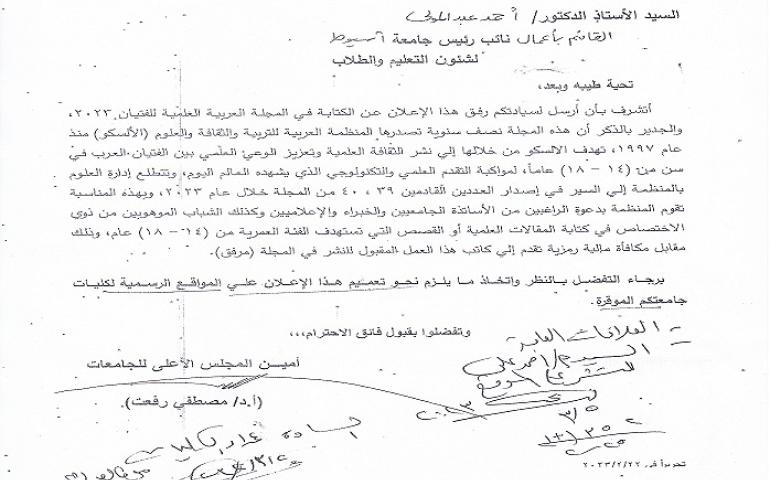 السيد الأستاذ الدكتور/ أحمد عبد المولى
القائم بأعمال نائب رئيس جامعة أسيوط
لشئون التعليم والطلاب
تحية طيبه وبعد،
أتشرف بأن أرسل لسيادتكم رفق هذا الإعلان عن الكتابة في المجلة العربية العلمية للفتيان ٢٠٢٣،
والجدير بالذكر أن هذه المجلة نصف سنوية تصدرها المنظمة العربية للتربية والثقافة والعلوم (الألسكو) منذ
عام ١٩٩٧، تهدف الالسكو من خلالها إلي نشر الثقافة العلمية وتعزيز الوعي العلمي بين الفتيان العرب في
سن من (١٤ – ١٨) عاماً، لمواكبة التقدم العلمي والتكنولوجي الذي يشهده العالم اليوم، وتتطلع إدارة العلوم
بالمنظمة إلي السير في إصدار العددين القادمين ٣٩ ، ٤٠ من المجلة خلال عام ٢٠٢٣، وبهذه المناسبة
تقوم المنظمة بدعوة الراغبين من الأساتذة الجامعيين والخبراء والإعلاميين وكذلك الشباب الموهوبين من ذوي
الاختصاص في كتابة المقالات العلمية أو القصص التي تستهدف الفئة العمرية من (١٤ – ١٨) عام، وذلك
مقابل مكافأة مالية رمزية تقدم إلي كاتب هذا العمل المقبول للنشر في المجلة (مرفق).
برجاء التفضل بالنظر واتخاذ ما يلزم نحو تعميم هذا الإعلان علي المواقع الرسمية لكليات
جامعتكم الموقرة.
وتفضلوا بقبول فائق الاحترام،،،
العلاقات العامة
أمين المجلس الأعلى للجامعات
(أ.د/ مصطفي رفعت)
السادة
تحريراً في ٢٠٢٣/٢/٢٢